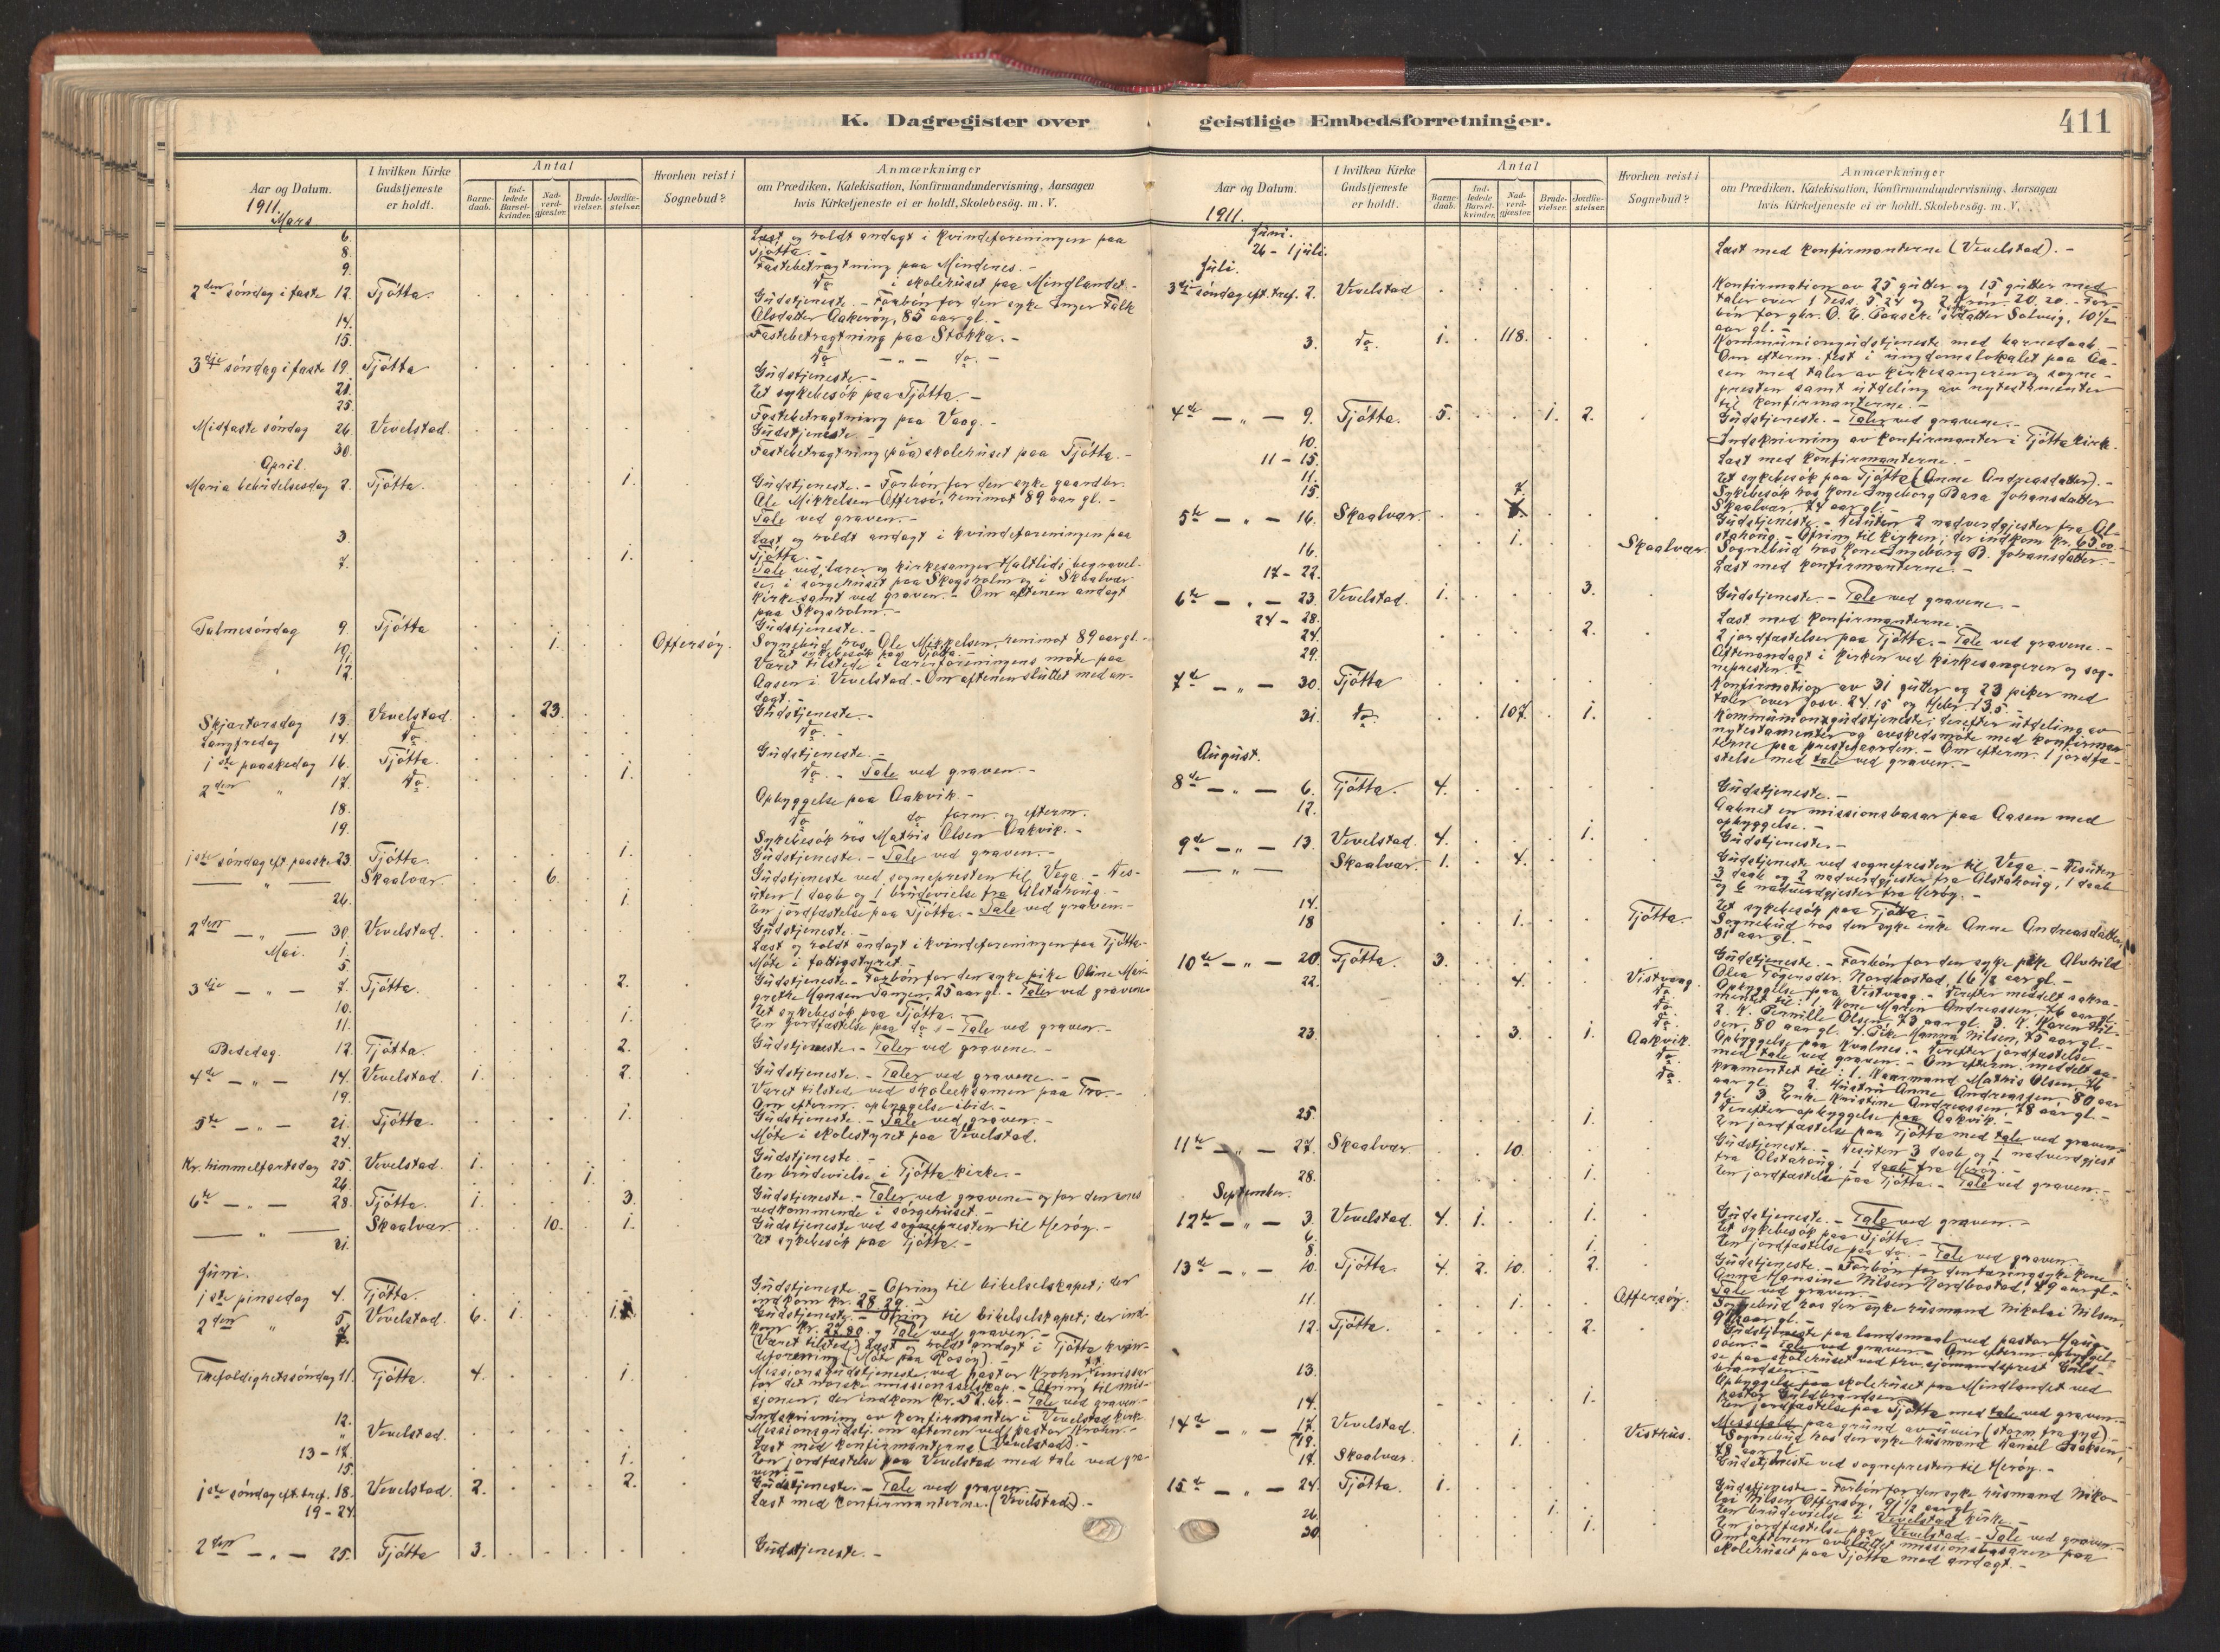 K. Dagregister over geistlige Embedsforretninger.
411
Aar og Datum.
I hvilken Kirke Gudstjeneste er holdt.
Antal
Barnedaab.
Indledede Barselkvinder.
Nadverdgjester.
Brudevielser.
Jordfæstelser.
Hvorhen reist i Sognebud?
Anmærkninger
om Prædiken, Katekisation, Konfirmandundervisning, Aarsagen
hvis Kirketjeneste ei er holdt, Skolebesøg. m. V.
1911.
Mars
6. Læst og holdt andagt i kvindeforeningen paa
Tjøtta. -
8. Fastebetragtning paa Mindenes. -
9. do i skolehuset paa Mindlandet. -
2den søndag i faste 12. Tjøtta. Gudstjeneste. - Forbøn for den syke Inger Falk
Olsdatter Aakerøy, 85 aar gl. -
14. Fastebetragtning paa Stokka. -
15. do - " - do. -
3dje søndag i faste 19. Tjøtta Gudstjeneste. -
21. Et sykebesøk paa Tjøtta. -
25. Fastebetragtning paa Vaag. -
Midfaste søndag 26. Vevelstad. Gudstjeneste. -
30. Fastebetragtning (paa) skolehuset paa Tjøtta. -
April.
Maria bebudelsesdag 2. Tjøtta. 1. Gudstjeneste. - Forbøn for den syke gaardbr.
Ole Mikkelsen Offersø, henimot 89 aar gl. -
Tale ved graven. -
3. Læst og holdt andagt i kvindeforeningen paa
Tjøtta. -
7. 1. Tale ved lærer og kirkesanger Haltlids begravel-
se, i sørgehuset paa Skogsholm og i Skaalvær
kirke samt ved graven. - Om aftenen andagt
paa Skogsholm. -
Palmesøndag 9. Tjøtta Gudstjeneste. -
10. 1. Offersøy. Sognebud hos Ole Mikkelsen, henimot 89 aar gl. -
11. Et sykebesøk paa Tjøtta. -
12. Været tilstede i lærerforeningens møte paa
Aasen i Vevelstad. - Om aftenen sluttet med an-
dagt. -
Skjærtorsdag 13. Vevelstad. 23. Gudstjeneste. -
Langfredag 14. do. do. -
1ste paaskedag 16. Tjøtta. Gudstjeneste. -
2den " 17. do. 1. do. - Tale ved graven. -
18. Opbyggelse paa Aakvik. -
19. do " do form. og efterm.
Sykebesøk hos Mathis Olsen Aakvik. -
1ste søndag eft. paaske 23. Tjøtta. 1. Gudstjeneste. - Tale ved graven. -
— " — Skaalvær. 6. Gudstjeneste ved sognepresten til Vega. - Des-
uten 1 daab og 1 brudevielse fra Alstahaug. -
26. 1. En jordfæstelse paa Tjøtta. - Tale ved graven. -
2den — " — 30. Vevelstad. Gudstjeneste. -
Mai. 1. Læst og holdt andagt i kvindeforeningen paa Tjøtta. -
5. Møte i fattigstyret. -
3dje — " — 7. Tjøtta. 2. Gudstjeneste. - Forbøn for den syke pike Oline Mar-
grethe Hansen Tangen, 25 aar gl. - Taler ved gravene.
10. Et sykebesøk paa Tjøtta. -
11. 1. En jordfæstelse paa do. - Tale ved graven. -
Bededag. 12. Tjøtta. 2. Gudstjeneste. - Taler ved gravene. -
4de — " — 14. Vevelstad. 1. 2. Gudstjeneste. - Taler ved gravene. -
19. Været tilsted ved skoleeksamen paa Tro. -
Om efterm. opbyggelse ibid. -
5te — " — 21. Tjøtta. 1. Gudstjeneste. - Tale ved graven. -
24. Møte i skolestyret paa Vevelstad.
Kr. himmelfartsdag 25. Vevelstad. 1. Gudstjeneste. -
26. 1. En brudevielse i Tjøtta kirke. -
6te — " — 28. Tjøtta. 1. 3. Gudstjeneste. - Taler ved gravene - og for den enes
vedkommende i sørgehuset. -
— " — Skaalvær. 10. 1. Gudstjeneste ved sognepresten til Herøy. -
31. Et sykebesøk paa Tjøtta. -
Juni.
1ste pinsedag 4. Tjøtta. Gudstjeneste. - Ofring til bibelselskapet; der
indkom kr. 28.29. -
2den " 5. Vevelstad. 6. 1. 1. Gudstjeneste. - Ofring til bibelselskapet; der ind-
kom kr. 27.80. og Tale ved graven. -
7. (Været tilsted) Læst og holdt andagt i Tjøtta kvin-
deforening (Møte paa Rosøy). -
Trefoldighetssøndag 11. Tjøtta. 4. 1. Missionsgudstjeneste, ved pastor Krohn, emissær
for det norske missionsselskap. - Ofring til mis-
sjonen, der indkom kr. 52.66. - Tale ved graven. -
12. Indskrivning av konfirmanter i Vevelstad kirke
" Vevelstad. Missionsgudstj. om aftenen ved pastor Krohn. -
13 - 17. Læst med konfirmanterne (Vevelstad). -
15. 1. En jordfæstelse paa Vevelstad med tale ved gra-
ven. -
1ste søndag eft. tref. 18. Vevelstad. 2. 2. Gudstjeneste. - Tale ved graven. -
19 - 24. Læst med konfirmanterne. (Vevelstad). -
2den — " — 25. Tjøtta 3. Gudstjeneste. -
Aar og Datum.
I hvilken Kirke Gudstjeneste er holdt.
Antal
Barnedaab.
Indledede Barselkvinder.
Nadverdgjester.
Brudevielser.
Jordfæstelser.
Hvorhen reist i Sognebud?
Anmærkninger
om Prædiken, Katekisation, Konfirmandundervisning, Aarsagen
hvis Kirketjeneste ei er holdt. Skolebesøg. m. V.
1911.
Juni.
26 - 1 juli. Læst med konfirmanterne (Vevelstad). -
Juli.
3dje søndag eft. tref. 2. Vevelstad Konfirmation av 25 gutter og 15 gutter med
taler over 1 Tess. 5.24 og 2 Krøn. 20.20. - For-
bøn for gbr. O. E. Paaske's datter Solveig, 10½
aar gl. -
3. do. 1. 118. Kommuniongudstjeneste med barnedaab. -
Om efterm. fest i ungdomslokalet paa Aa-
sen med taler av kirkesangeren og sogne-
presten samt utdeling av nytestamenter
til konfirmanterne. -
4de — " — 9. Tjøtta. 5. 1. 2. Gudstjeneste. - Taler ved gravene. -
10. Indskrivning av konfirmanter i Tjøtta kirk.
11 - 15. Læst med konfirmanterne. -
11. Et sykebesøk paa Tjøtta (Anne Andreasdatter). -
15. Sykebesøk hos kone Ingeborg Bara Johansdatter
Skaalvær, 74 aar gl. -
5te — " — 16. Skaalvær. 7. Gudstjeneste. - Desuten 2 nadverdgjester fra Al-
stahaug. - Ofring til kirken; der indkom kr. 65.00
16. 1. Skaalvær. Sognebud hos kone Ingeborg B. Johansdatter. -
17 - 22. Læst med konfirmanterne. -
6te — " — 23. Vevelstad. 1. 3. Gudstjeneste. - Tale ved gravene. -
24 - 28. Læst med konfirmanterne. -
24. 2. 2 jordfæstelser paa Tjøtta. - Tale ved gravene. -
29. Aftenandagt i kirken ved kirkesangeren og sog-
nepresten. -
7de — " — 30. Tjøtta Konfirmation av 31 gutter og 23 piker med
taler over Josv. 24.15 og Hebr. 13.5. -
31. do. 107. 1. Kommuniongudstjeneste, derefter utdeling av
nytestamenter og avskedsmøte med konfirman-
terne paa prestegaarden. - Om efterm. 1 jordfæ-
stelse med tale ved graven. -
August.
8de — " — 6. Tjøtta. 4. Gudstjeneste. -
12. Aabnet en missionsbasar paa Aasen med
opbyggelse. -
9de — " — 13. Vevelstad. 4. 1. Gudstjeneste. -
— " — Skaalvær. 1. 4. Gudstjeneste ved sognepresten til Vega. - Desuten
3 daab og 2 nadverdgjester fra Alstahaug, 1 daab
og 6 nadverdgjester fra Herøy. -
14. Et sykebesøk paa Tjøtta. -
18 1. Tjøtta. Sognebud hos den syke enke Anne Andreasdatter,
81 aar gl. -
10de — " — 20. Tjøtta. 3. Gudstjeneste. - Forbøn for den syke pike Alvhild
Olea Tøgersdtr. Nordbostad, 16½ aar gl. -
22. 4. Vistvaag. Opbyggelse paa Vistvaag. - Derefter meddelt sakra-
do. mentet til: 1. Kone Maren Andreassen, 76 aar gl. -
do. 2. K. Pernille Olsen 73 aar gl. 3. K. Karen Nil-
do. sen, 80 aar gl. 4. Pike Hanna Nilsen, 75 aar gl. -
23. 3. 1. Aakvik. Opbyggelse paa Kvalnes. - Derefter jordfæstelse
do. med tale ved graven. - Om efterm. meddelt sa-
do. kramentet til: 1. Kaarmand Mathis Olsen, 76
aar gl. og 2. Hustru Anne Andreassen, 80 aar
gl. 3. Enke Kristine Andreassen, 78 aar gl. -
Derefter opbyggelse paa Aakvik. -
25. 1. En jordfæstelse paa Tjøtta med tale ved graven.
11te — " — 27. Skaalvær. 10. Gudstjeneste. - Desuten 3 daab og 1 nadverdgjest
fra Alstahaug. 1 daab fra Herøy. -
28. 1. En jordfæstelse paa Tjøtta. - Tale ved graven. -
September.
12te — " — 3. Vevelstad. 4. 1. 1. Gudstjeneste. - Tale ved graven. -
6. Et sykebesøk paa Tjøtta. -
8. 1. En jordfæstelse paa do. - Tale ved graven. -
13de — " — 10. Tjøtta. 4. 2. 10. 2. Gudstjeneste. - Forbøn for den tæringsyke kone
Anna Hansine Nilsen Nordbostad, 49 aar gl. -
Tale ved graven. -
11. 1. Offersøy. Sognebud hos den syke husmand Nikolai Nilsen,
91 aar gl. -
12. Tjøtta. 2. Gudstjeneste paa landsmaal ved pastor Haug-
søen. - Tale ved graven. - Om efterm. opbyggel-
se paa skolehuset ved fhv. sjømandsprest Guld-
brandsen. -
13. Opbyggelse paa skolehuset paa Mindlandet ved
pastor Guldbrandsen. -
14. 1. En jordfæstelse paa Tjøtta med tale ved graven. -
14de — " — 17. Vevelstad. Messefald paa grund av uveir (storm fra syd). -
(19. 1. Visthus. Sognebud hos den syke husmand Daniel Isaksen,
78 aar gl. -
17. Skaalvær. Gudstjeneste ved sognepresten til Herøy. -
15de — " — 24. Tjøtta. 1. Gudstjeneste. - Forbøn for den syke husmand Niko-
lai Nilsen Offersøy, 91½ aar gl. -
26. 1. En brudevielse i Vevelstad kirke. -
30. 1. En jordfæstelse paa Vevelstad. - Tale ved graven. -
Om aftenen avsluttet missionsbasaren paa
skolehuset paa Tjøtta med andagt. -